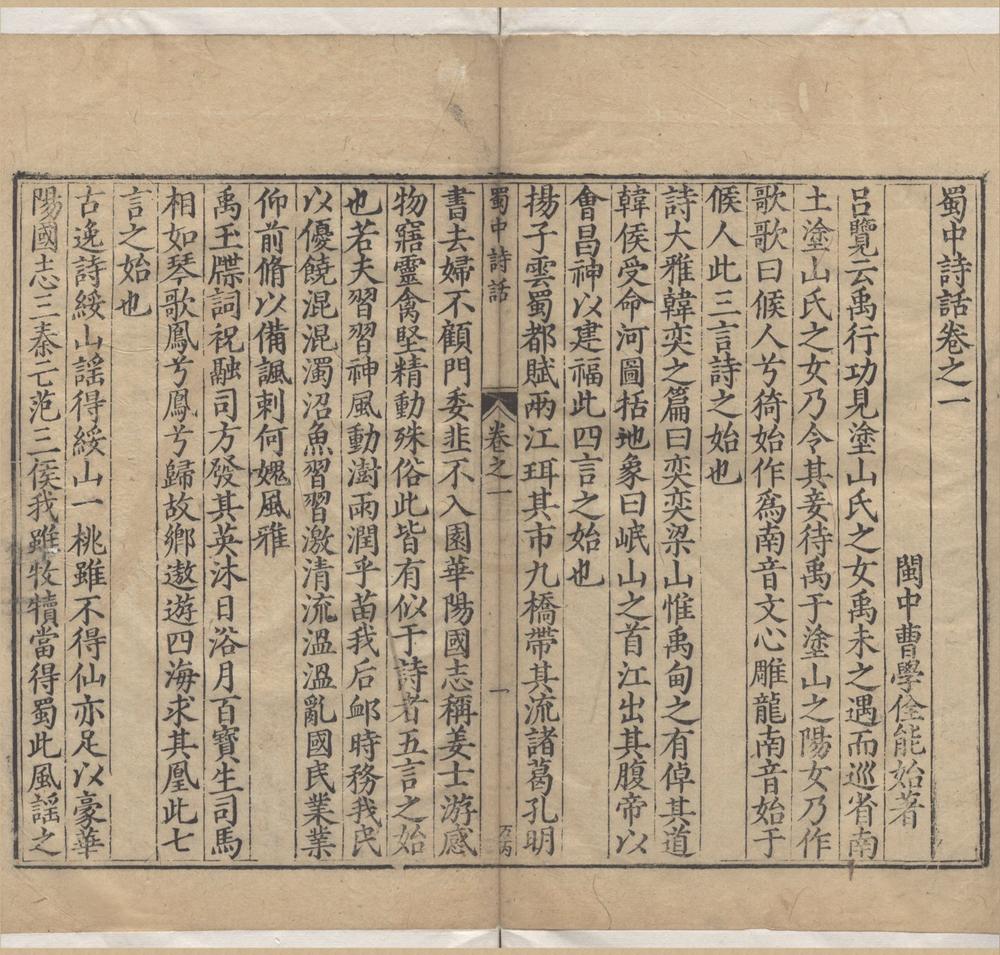 蜀中詩話卷之一
閩中曹學佺能始著
呂覽云禹行功見塗山氏之女禹未之遇而巡省南
土塗山氏之女乃令其妾待禹于塗山之陽女乃作
歌歌曰候人兮猗始作爲南音文心雕龍南音始于
候人此三言詩之始也
詩大雅韓奕之篇曰奕奕梁山惟禹甸之有倬其道
韓侯受命河圖括地象曰岷山之首江出其腹帝以
會昌神以建福此四言之始也
揚子雲蜀都賦兩江珥其市九橋帶其流諸葛孔明
蜀中詩話 卷之一 一
書去婦不顧門委韭不入園華陽國志稱姜士游感
物寤靈禽堅精動殊俗此皆有似于詩者五言之始
也若夫習習神風動澍雨潤乎苗我后卹時務我民
以優饒混混濁沼魚習習激清流溫溫亂國民業業
仰前脩以備諷刺何媿風雅
禹玉牒詞祝融司方發其英沐日浴月百寶生司馬
相如琴歌鳳兮鳳兮歸故鄉遨遊四海求其凰此七
言之始也
古逸詩綏山謡得綏山一桃雖不得仙亦足以豪華
陽國志三秦亡范三侯我雖牧犢當得蜀此風謡之